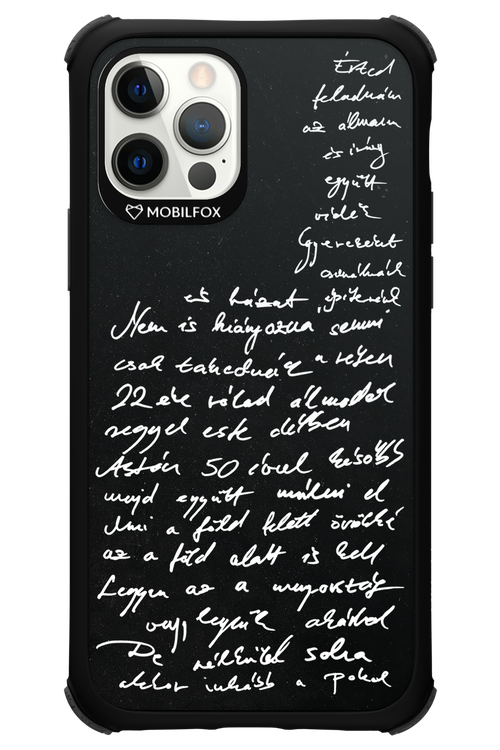 MOBILFOX
Érted
feladnám
az álmom
és irány
együtt
vidék
Gyerekeket
csinálnánk
és házat építenénk
Nem is hiányozna semmi
csak takednék a veled
22 éve rólad álmodok
reggel este délben
Aztán 50 évvel később
majd együtt múlni el
Ami a föld felett örökké
az a föld alatt is kell
Legyen az a mennyország
vagy legyünk akárhol
De nélküled soha
akkor inkább a pokol